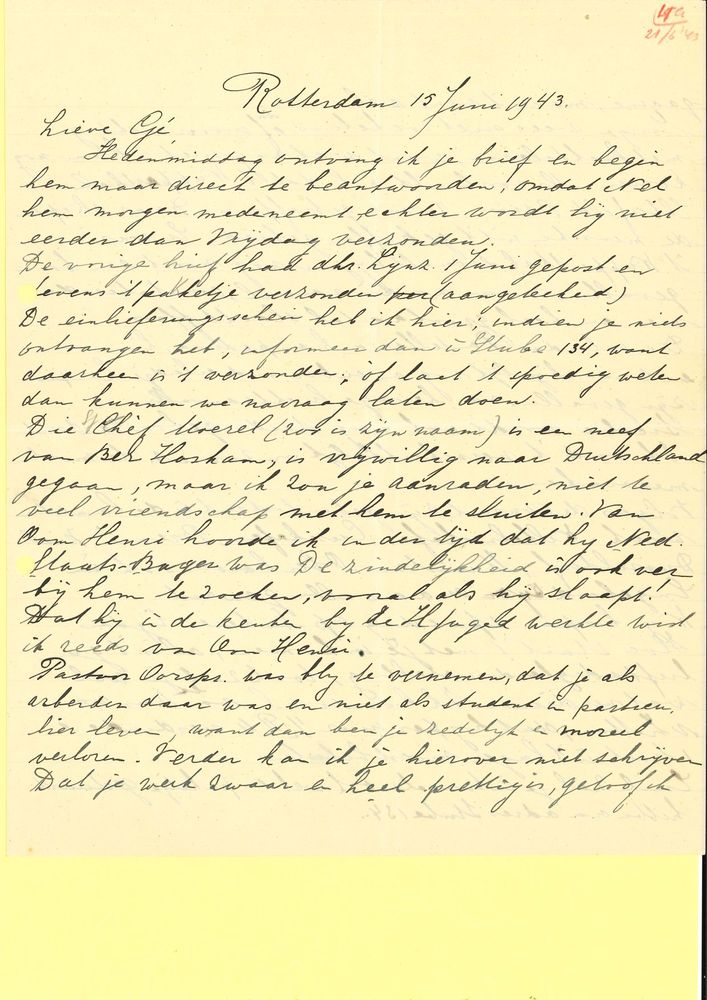 4a
21/6 '43
Rotterdam 15 Juni 1943.
Lieve Gé
Hedenmiddag ontving ik je brief en begin
hem maar direct te beantwoorden, omdat Nel
hem morgen medeneemt echter wordt hij niet
eerder dan Vrijdag verzonden.
De vorige brief had dhr. 1 Juni gepost en
tevens 't paketje verzonden (aangeteekend)
De einlieferungsschein heb ik hier, indien je niets
ontvangen heb, informeer dan in Stube 134, want
daarheen is 't verzonden, of laat 't spoedig weten
dan kunnen we navraag laten doen.
Die Chèf (zoo is zijn naam) is een neef
van Ber, is vrijwillig naar Duitschland
gegaan, maar ik zou je aanraden, niet te
veel vriendschap met hem te sluiten. Van
Oom Henri hoorde ik in der tijd dat hij Ned.
Staats-Burger was De zindelijkheid is ook ver
bij hem te zoeken, vooral als hij slaapt!
Dat hij in de keuken bij de H Juged werkte wist
ik reeds van Oom Henri.
Pastoor Oorsps. was blij te vernemen, dat je als
arbeider daar was en niet als student in particu,
lier leven, want dan ben je zedelijk en moreel
verloren. Verder kan ik je hierover niet schrijven
Dat je werk zwaar en heel prettig is, geloof ik